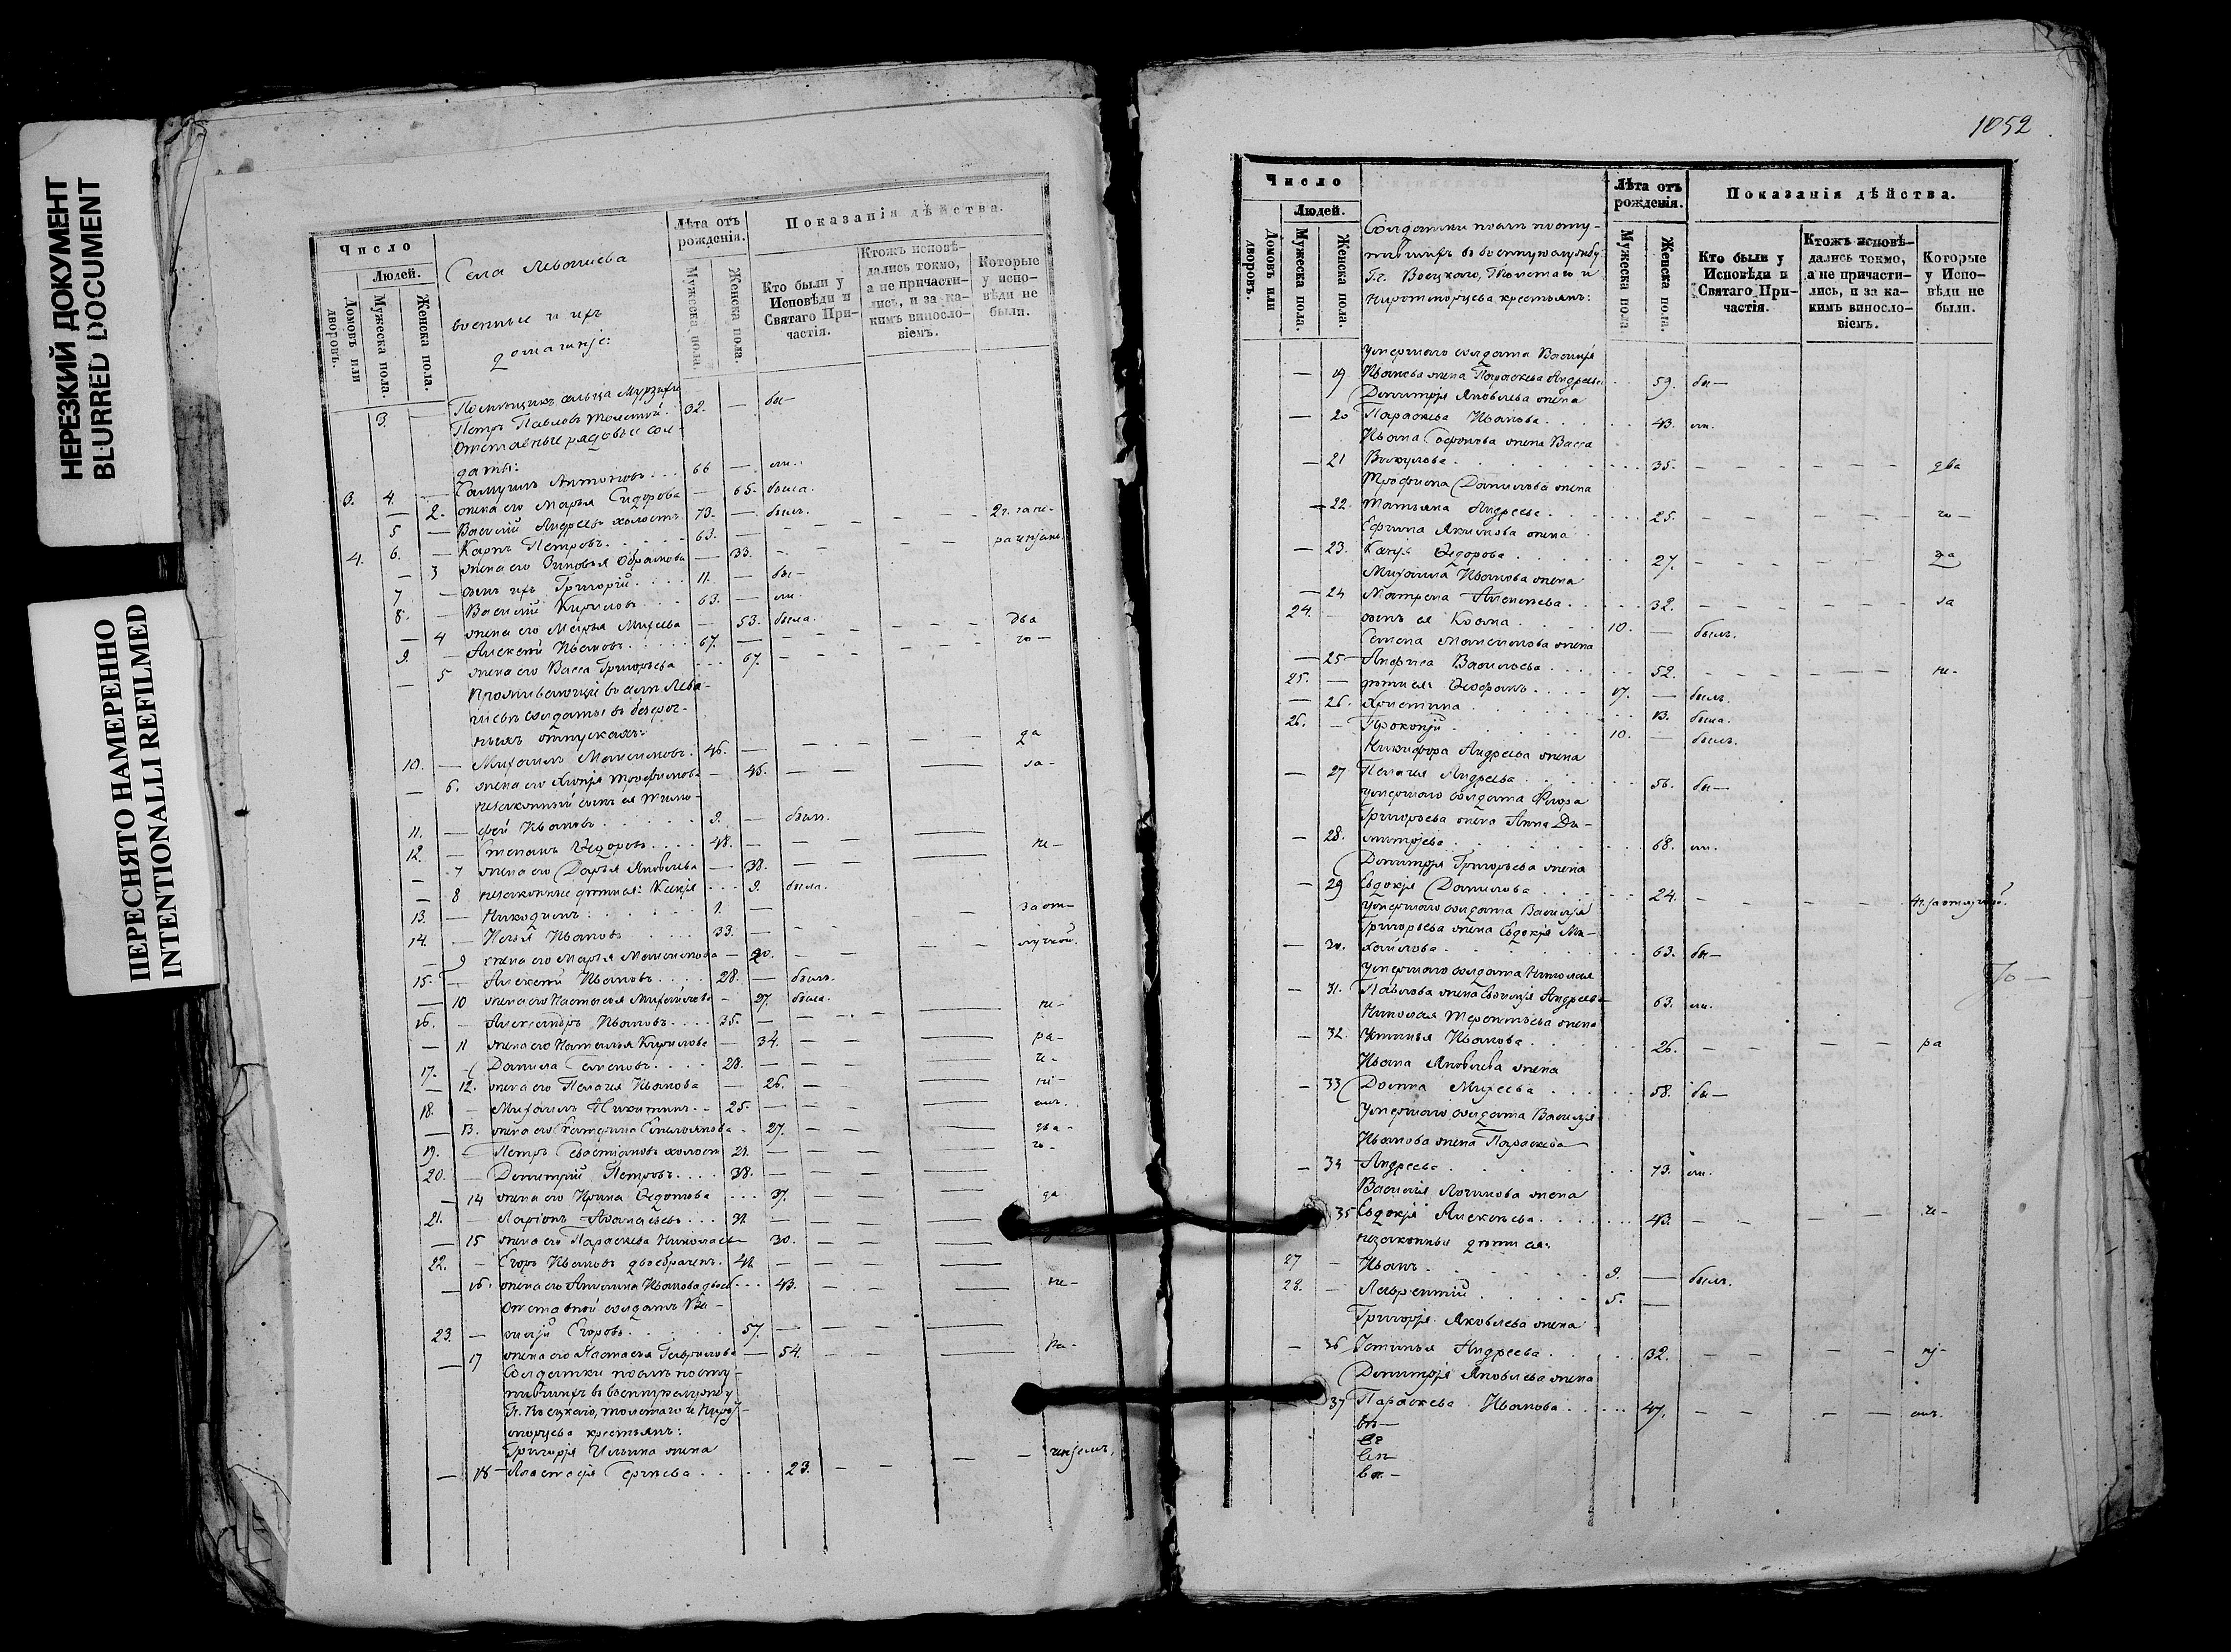 НЕРЕЗКИЙ ДОКУМЕНТ
BLURRED DOCUMENT
ПЕРЕСНЯТО НАМЕРЕННО
INTENTIONALLI REFILMED
Число
Людей.
Домовъ или дворовъ.
Мужеска пола.
Женска пола.
Села
военные и ихъ
домашніе:
Лѣта отъ рожденія.
Мужеска пола.
Женска пола.
Показанія дѣйства.
Кто были у Исповѣди и Святаго Причастія.
Ктожъ исповѣдались токмо, а не причастились, и за какимъ винословіемъ.
Которые у исповѣди не были.
3. — Помѣщикъ сельца
Петръ Павловъ Толстой. 32. — бы-
Отставные рядовые сол-
даты:
3. 4. — Самуилъ Антоновъ... 66 — ли.
— 2. жена его Марья Сидорова — 65. была.
5 — Василій Андреевъ холостъ 73. — былъ.
4. 6. — Карпъ Петровъ 63. —
— 3 жена его Зиновья — 33.
7 — сынъ ихъ Григорій.... 11. — бы-
8. — Василій Кириловъ 63. — ли.
— 4 жена его Марья Михеева — 53. была.
9. — Алексей Ивановъ..... 67. — два
— 5 жена его Васса Григорьева ... 67. го —
Проживающіе въ селѣ Лева-
шевѣ солдаты въ безсроч-
ныхъ отпускахъ:
10. — Михаилъ Максимовъ. 46. — да
— 6. жена его — 46. за-
незаконный сынъ ея Тимо-
11. — фей Ивановъ 9. — былъ.
12. — Степанъ Ѳедоровъ.... 48. — не-
— 7 жена его Дарья Яковлева — 38.
— 8 незаконные дѣти ея: ... 9. была.
13. — Никодимъ 1. —
14. — Илья Ивановъ 33. — за от-
— 9 жена его Марья Максимова — 20. лучкой.
15. — Алексей Ивановъ.... 28. — былъ.
— 10 жена его Настасья Михайлова — 27. была.
16. — Александръ Ивановъ.... 35. — не-
— 11 жена его Наталья Кирилова — 34. ра-
17. — Данила Семеновъ.... 28. —
— 12. жена его Пелагея Иванова — 26.
18. — Михаилъ Никитинъ.. 25. —
— 13. жена его Катерина Емельянова 27.
19. — Петръ Севастіановъ холостъ 21. —
20. — Димитрій Петровъ.... 38. —
— 14 жена его Ирина Ѳедотова ... 37. да
21. — Ларіонъ Аѳанасьевъ... 31. —
— 15 жена его Параскева Николаева 30.
22. — Егоръ Ивановъ двоебраченъ. 41. —
— 16. жена его Акилина Иванова ... 43. не-
Отставной солдатъ Ва-
23. — силій Егоровъ 57. —
— 17 жена его Настасья Гаврилова — 54. ра-
Солдатки послѣ посту-
пившихъ въ военную службу
Гг. Воецкаго, Толстаго и
крестьянъ:
Григорія Ильина жена
— 18 Анастасія Сергѣева.... 23.
1052
Число
Людей.
Домовъ или дворовъ.
Мужеска пола.
Женска пола.
Солдатки послѣ посту-
пившихъ въ военную службу
Гг. Воецкаго, Толстаго и
крестьянъ:
Лѣта отъ рожденія.
Мужеска пола.
Женска пола.
Показанія дѣйства.
Кто были у Исповѣди и Святаго Причастія.
Ктожъ исповѣдались токмо, а не причастились, и за какимъ винословіемъ.
Которые у Исповѣди не были.
Умершаго солдата Василія
— 19 Иванова жена Параскева Андреева 59. бы—
Димитрія Яковлева жена
— 20 Параскева Иванова..... 43. ли.
Ивана Софонова жена Васса
— 21 Викулова 35. два
Трофима Данилова жена
— 22. Татьяна Андреева.... 25. го—
Ефима Якимова жена
— 23. Ѳедорова..... 27. за
Михаила Иванова жена
— 24 Матрена Алексеева..... 32. за
24. — сынъ ея Козма.... 10. — былъ.
Семена Максимова жена
— 25 Анфиса Васильева.... 52. не-
25. — дѣти ея: Ѳеофанъ.... 17. — былъ.
— 26. Христина 13. была.
26. — Прокопій 10. — былъ.
Никифора Андреева жена
— 27 Пелагея Андреева 56. бы—
Умершаго солдата Флора
Григорьева жена Анна Ди-
— 28. митріева 68. ли.
Димитрія Григорьева жена
— 29 Евдокія Данилова 24. за отлучкой.
Умершаго солдата Василія
Григорьева жена Евдокія Ми-
— 30. хайлова 63. бы—
Умершаго солдата Николая
— 31. Павлова жена Андреева 63. ли.
Николая Терентьева жена
— 32. Устинья Иванова 26. ра
Ивана Яковлева жена
— 33 Домна Михеева 58. бы—
Умершаго солдата Василія
Иванова жена Параскева
— 34 Андреева 73. ли.
Василія Логинова жена
35 Евдокія Алексеева...... 43. че-
незаконные дѣти ея:
27 — Иванъ 9. — былъ.
28. — Лаврентій 5. —
Григорія Яковлева жена
— 36 Устинья Андреева.... 32.
Димитрія Яковлева жена
37 Параскева Иванова..... 47.